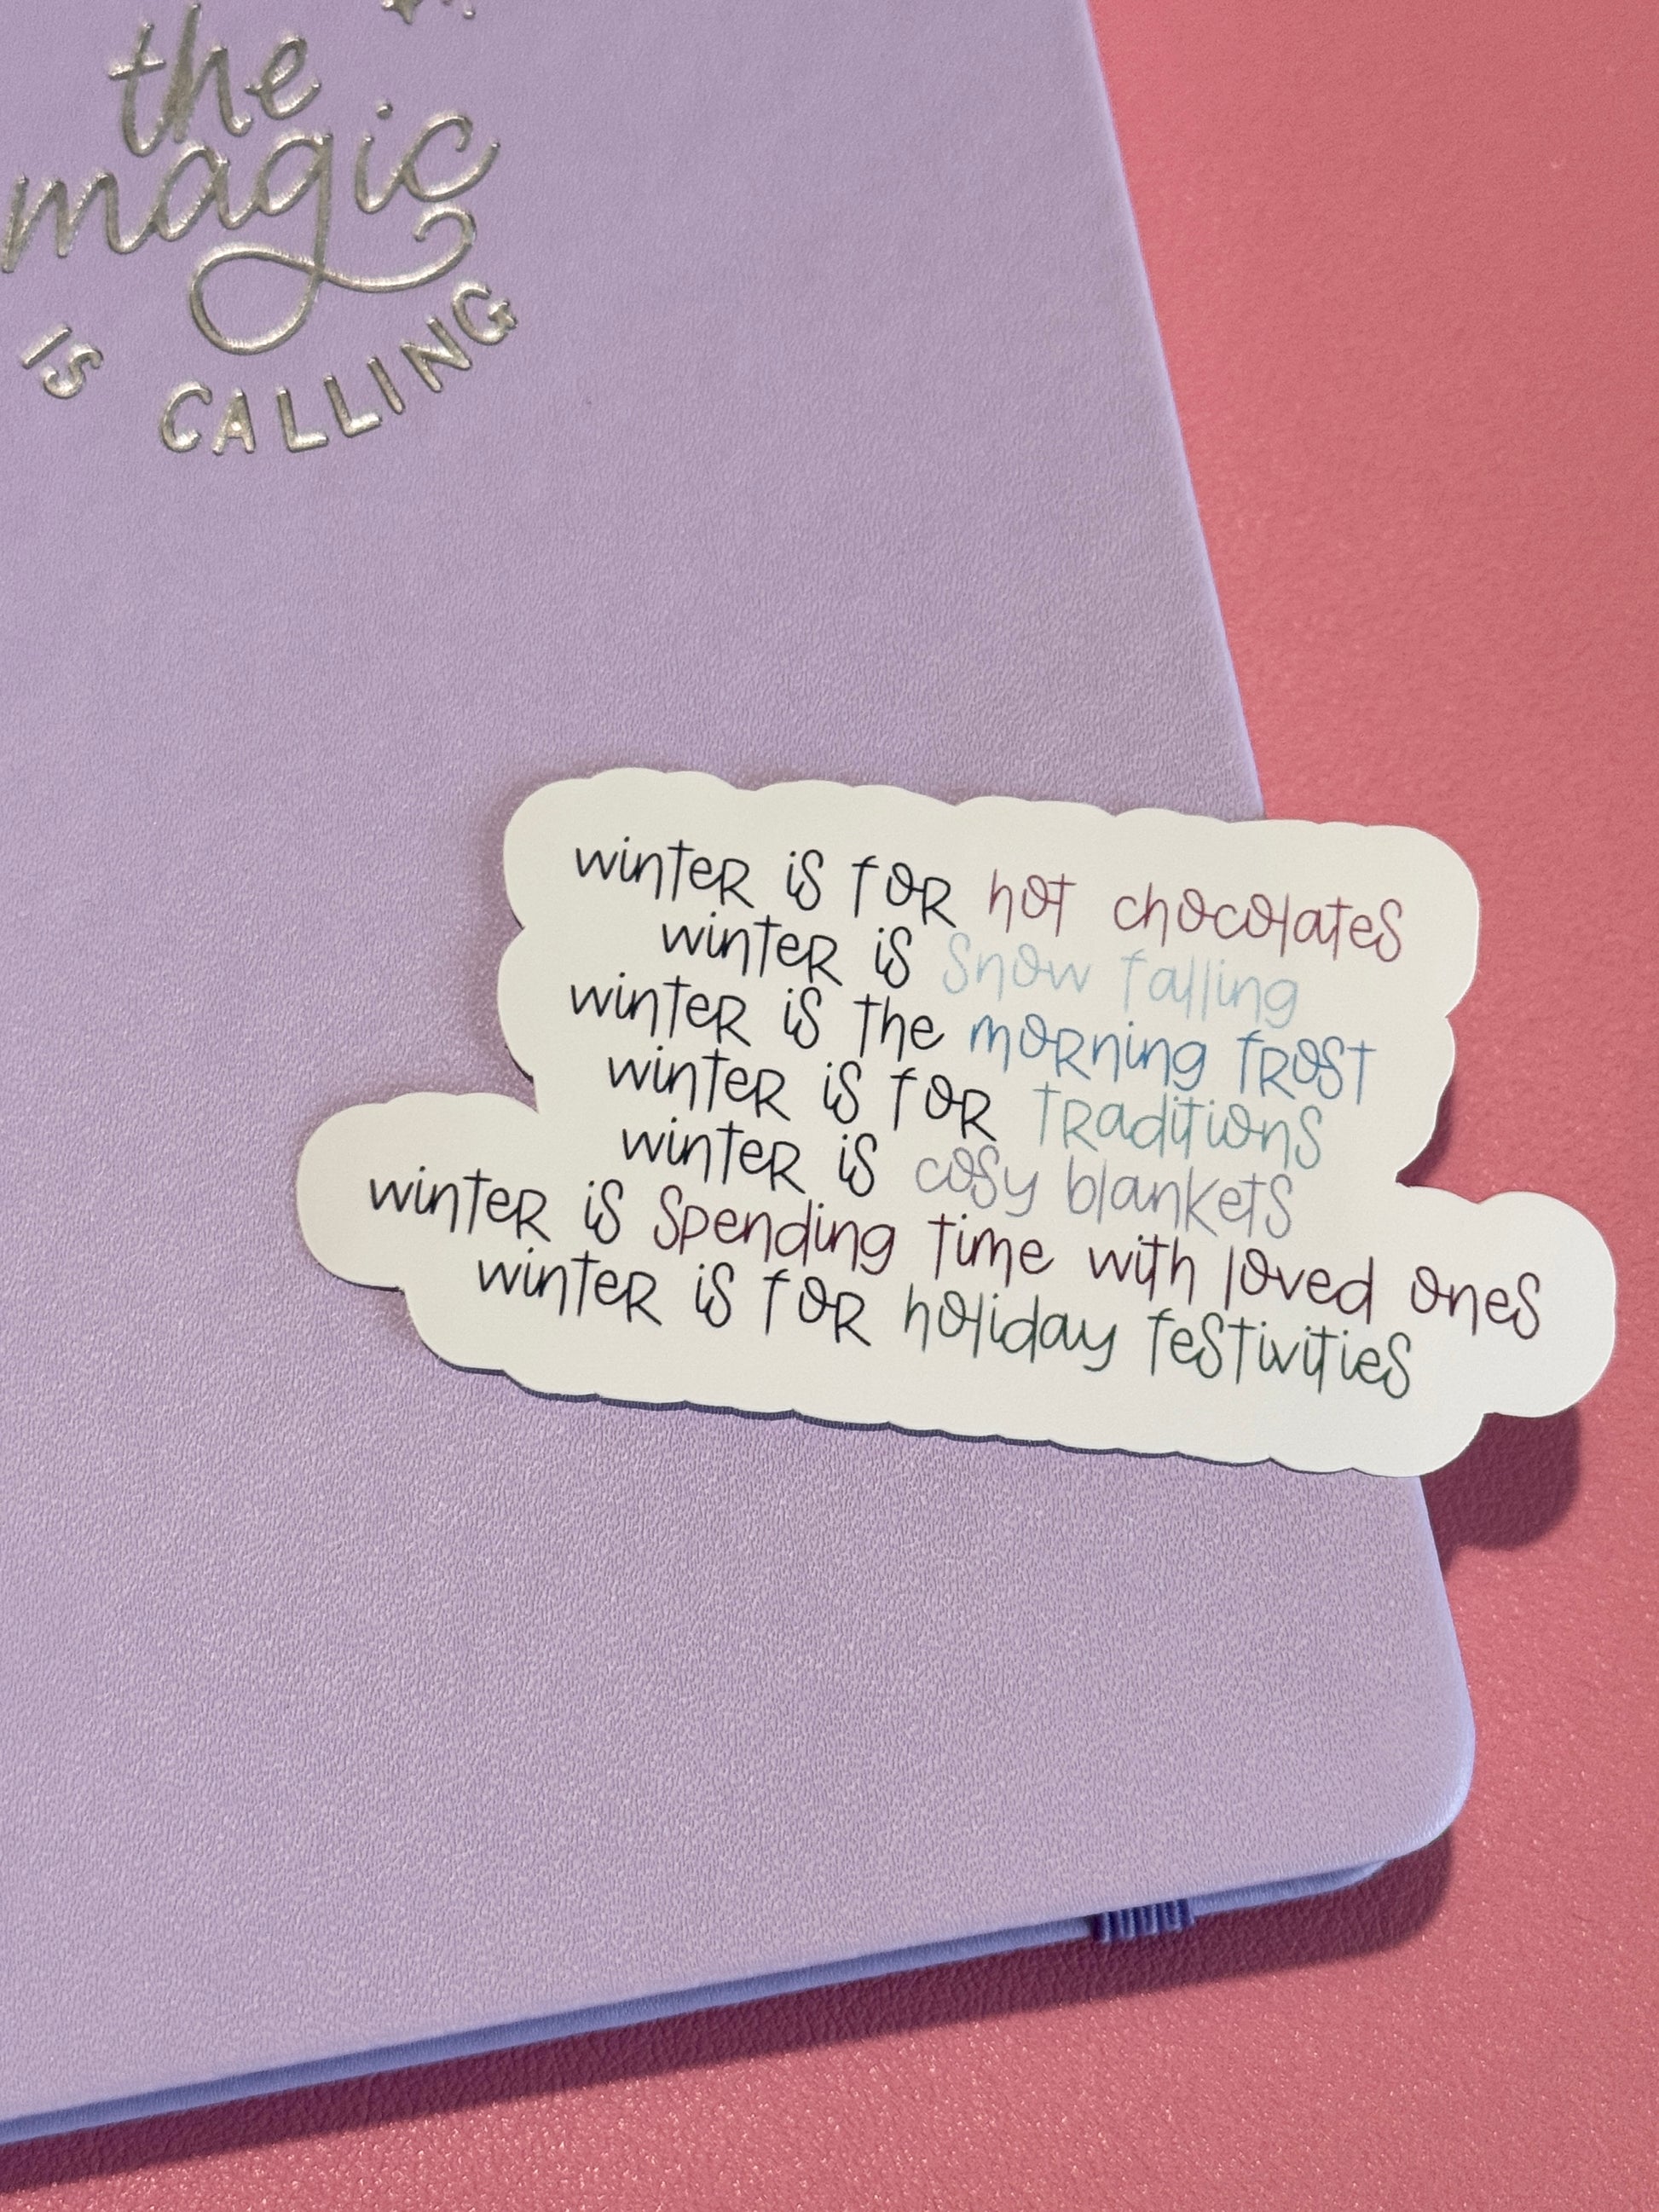 the
magic
IS CALLING
winter is for hot chocolates
winter is snow falling
winter is the morning frost
winter is for traditions
winter is cosy blankets
winter is spending time with loved ones
winter is for holiday festivities